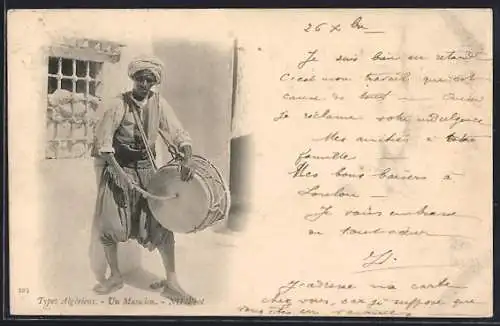 26 Xbre
Je suis bien en retard
C'est mon travail qui est
cause de tout
Je réclame votre indulgence
Mes amitiés à toute
famille
Mes bons baisers à
Je vous embrasse
de tout cœur
J.
J'adresse ma carte
chez vous, car je suppose que
vous êtes en vacances.
Types Algériens. - Un Musicien. - ND Phot